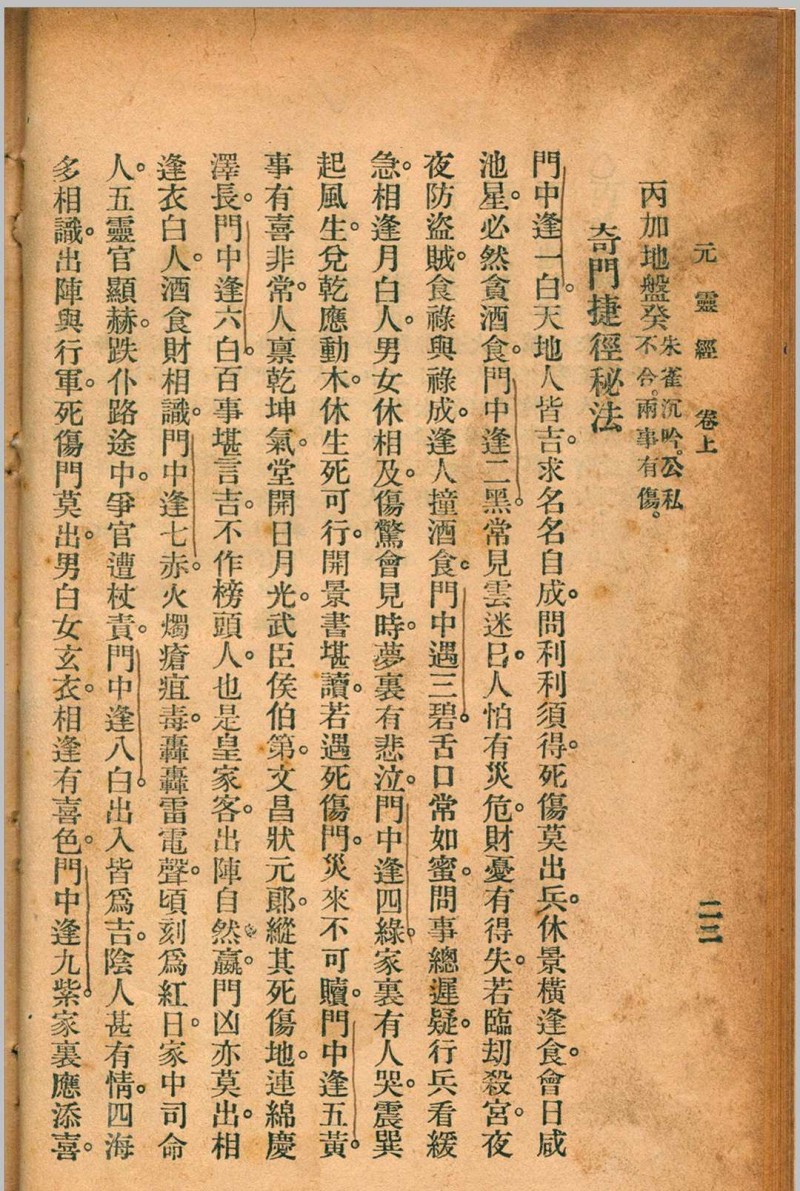 元靈經　卷上　二三
丙加地盤癸 朱雀沉吟。公私不合。兩事有傷。
奇門捷徑秘法
門中逢一白。天地人皆吉。求名名自成。問利利須得。死傷莫出兵。休景橫逢食。會日咸
池星。必然貪酒食。門中逢二黑。常見雲迷巳。人怕有災危。財憂有得失。若臨刧殺宮。夜
夜防盜賊。食祿與祿成。逢人撞酒食。門中遇三碧。舌口常如蜜。問事總遲疑。行兵看緩
急。相逢月白人。男女休相及。傷驚會見時。夢裏有悲泣。門中逢四綠。家裏有人哭。震巽
起風生。兌乾應動木。休生死可行。開景書堪讀。若遇死傷門。災來不可贖。門中逢五黃。
事有喜非常。人稟乾坤氣。堂開日月光。武臣侯伯第。文昌狀元郎。縱其死傷地。連綿慶
澤長。門中逢六白。百事堪言吉。不作榜頭人。也是皇家客。出陣自然嬴。門凶亦莫出。相
逢衣白人。酒食財相識。門中逢七赤。火燭瘡疽毒。轟轟雷電聲。頃刻爲紅日。家中司命
人。五靈官顯赫。跌仆路途中。爭官遭杖責。門中逢八白。出入皆爲吉。陰人甚有情。四海
多相識。出陣與行軍。死傷門莫出。男白女玄衣。相逢有喜色。門中逢九紫。家裏應添喜。